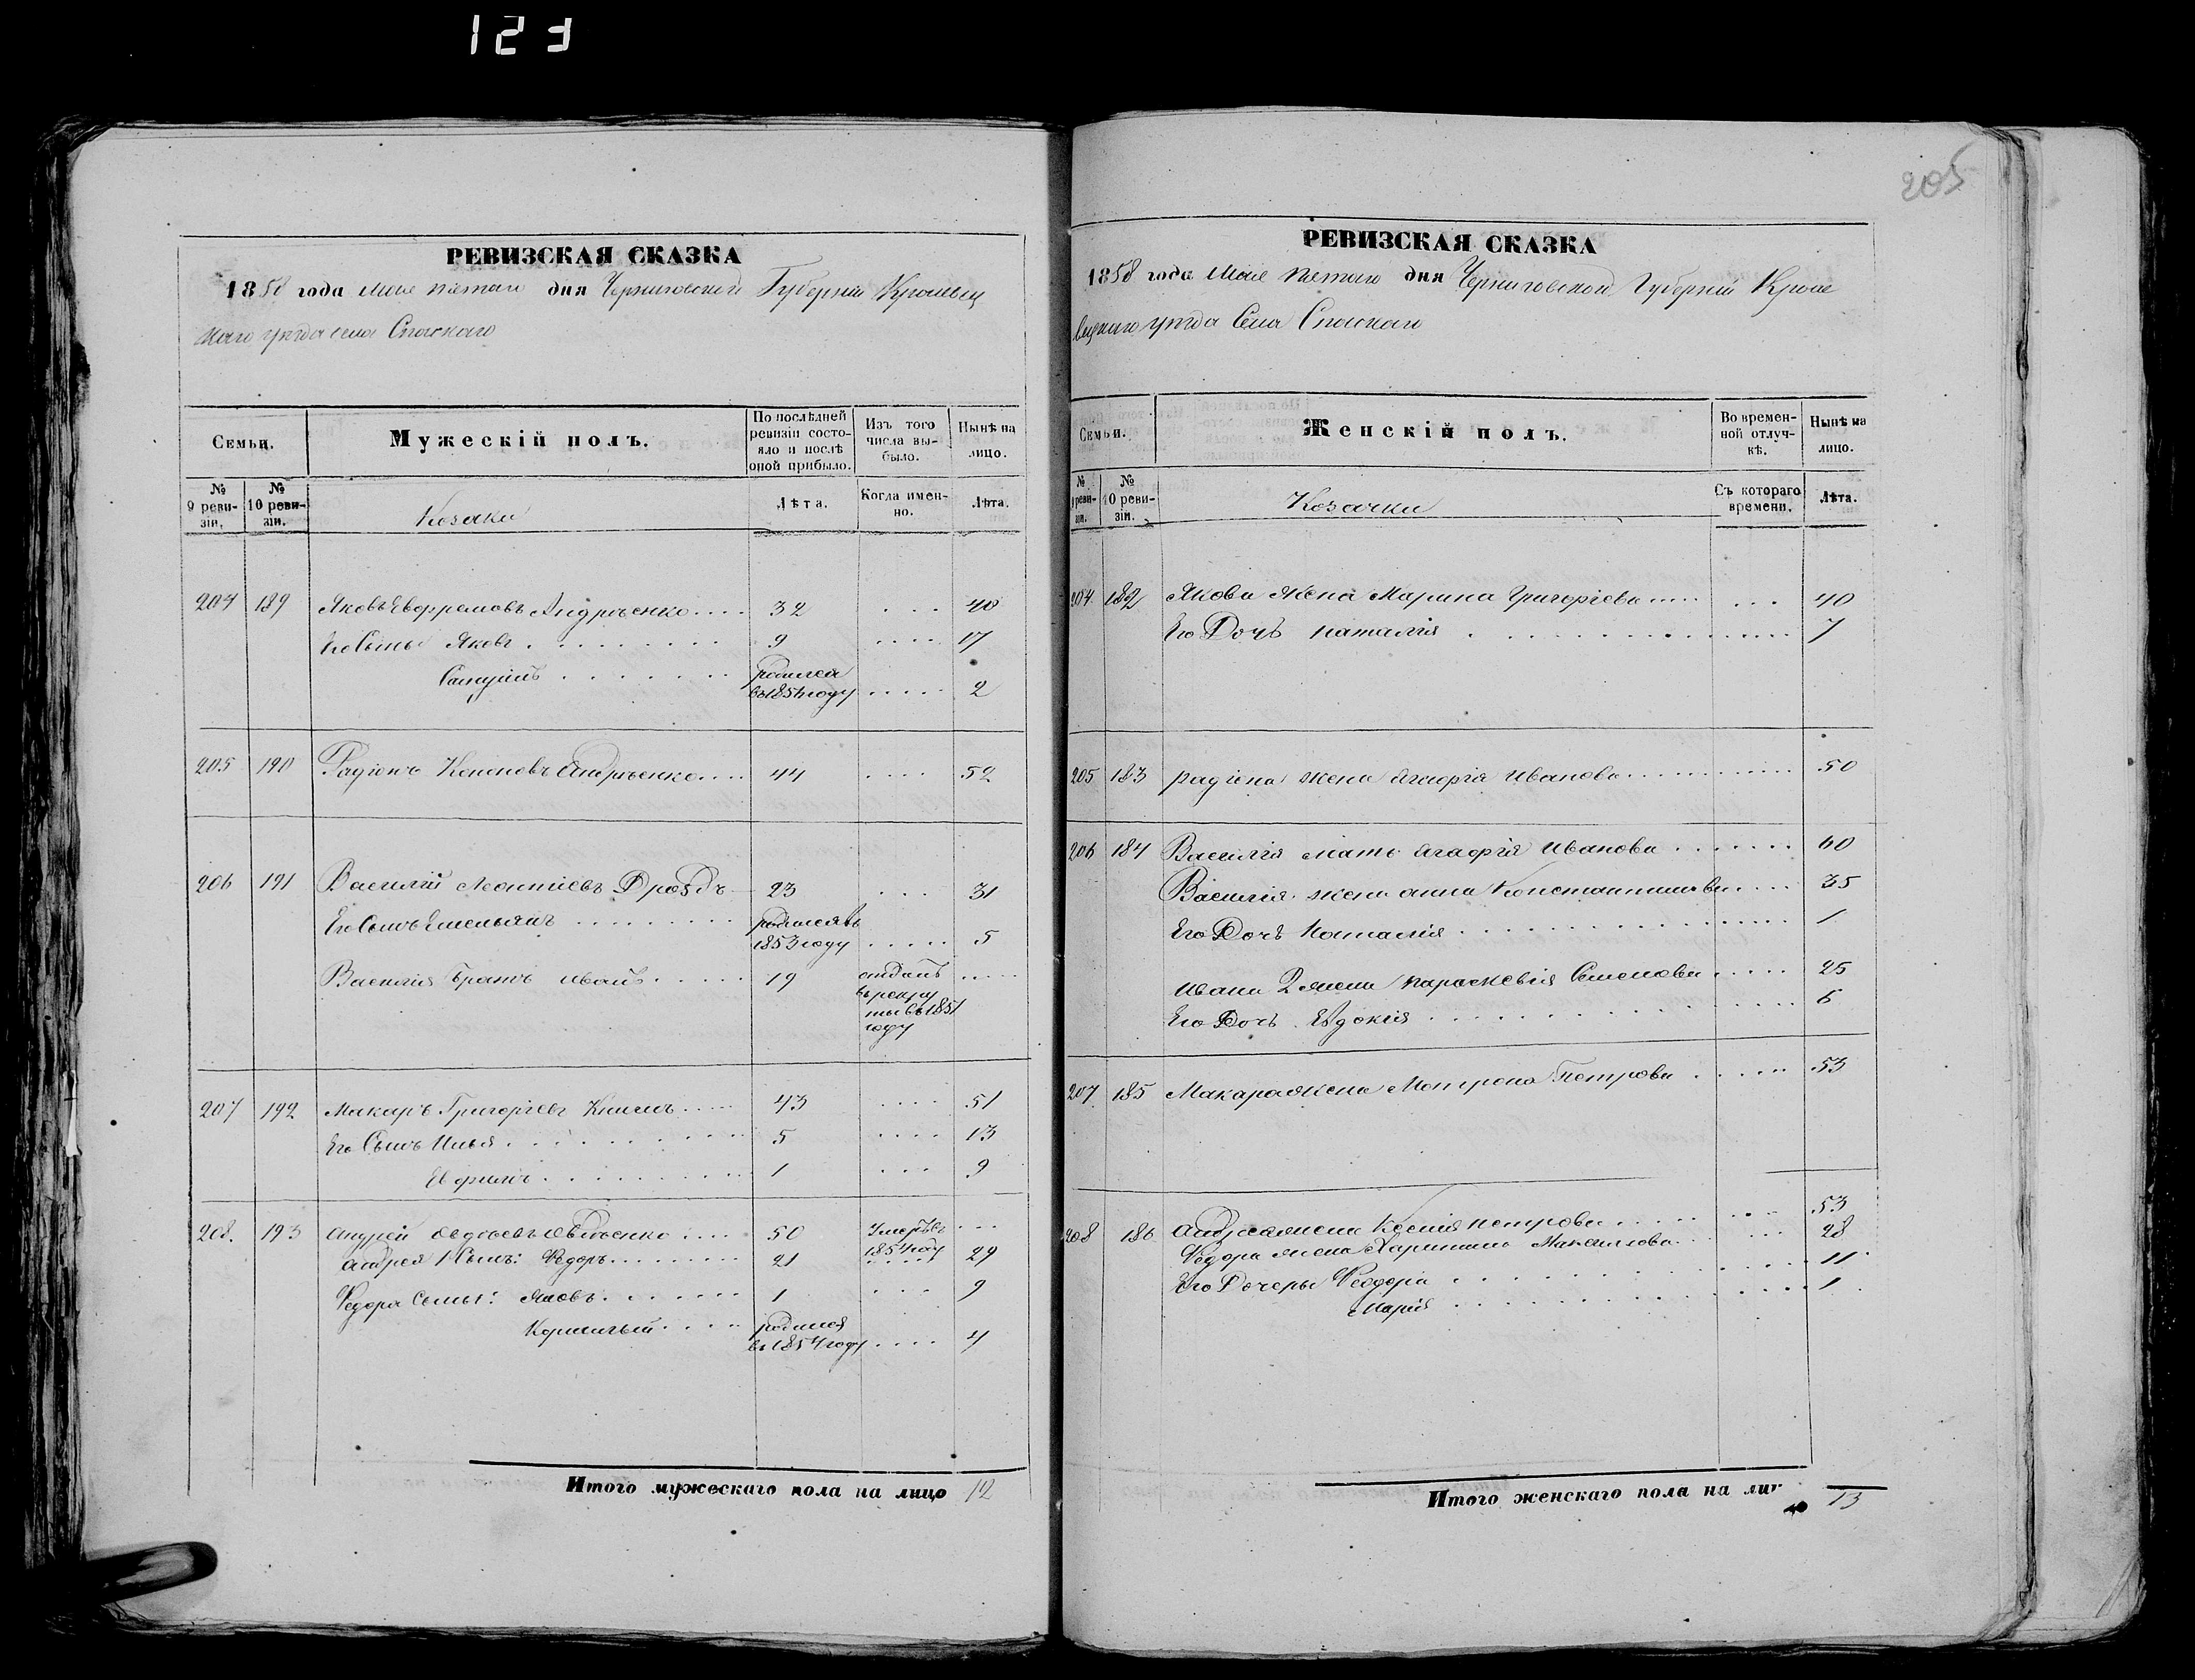 123
РЕВИЗСКАЯ СКАЗКА
1858 года Мая пятаго дня Черниговской Губерніи Кролевец
каго уезда села Спаскаго
Семьи.
Мужескій полъ.
По послѣдней ревизіи состояло и послѣ оной прибыло.
Изъ того числа выбыло.
Нынѣ на лицо.
№ 9 ревизіи.
№ 10 ревизіи.
Козаки
Лѣта.
Когда именно.
Лѣта.
204 189 Яковъ Андрѣенко .... 32 ... 40
Его Сыны Яковъ ........ 9 .... 17
........ родился въ 1854 году ..... 2
205 190 Радіонъ Кононовъ Андрѣенко .... 44 .... 52
206 191 Василій Леонтіевъ Дроздъ 23 ... 31
Его Сынъ Емельянъ ........ родился въ 1853 году ..... 5
Василія братъ Иванъ ...... 19 отданъ въ рекруты въ 1851 году ....
207 192 Макаръ Григоріевъ ..... 43 .... 51
Его Сынъ Илья ........ 5 .... 13
........ 1 ... 9
208. 193 Андрей .... 50 Умеръ въ 1854 году ...
Андрея 1 Сынъ: Федоръ ........ 21 ..... 29
Федора Сыны: Яковъ ....... 1 ... 9
Корнилий .... родился въ 1854 году .... 4
Итого мужескаго пола на лицо 12
205
РЕВИЗСКАЯ СКАЗКА
1858 года Мая пятаго дня Черниговской Губерніи Кроле
вецкаго уезда Села Спаскаго
Семьи.
Женскій полъ.
Во временной отлучкѣ.
Нынѣ на лицо.
№ 9 ревизіи.
№ 10 ревизіи.
Козачки
Съ котораго времени.
Лѣта.
204 182 Якова Жена Марина Григоріева ..... ... 40
Его Дочь Наталія ............. 7
205 183 Радіона жена Агафія Иванова ............ 50
206 184 Василія мать Агафія Иванова ....... 60
Василія жена Анна Константинова .... 35
Его Дочь Наталія ............... 1
Ивана 2 жена Параскевія Семенова ..... 25
Его Дочь Евдокія ............. 6
207 185 Макара жена Мотрона Петрова ..... 53
208 186 Андрея жена Ксенія Петрова ..... ... 53
Федора жена Максимова ... 28
Его Дочеры Феодора ............. 11
Марія ............. 1
Итого женскаго пола на лицо 13